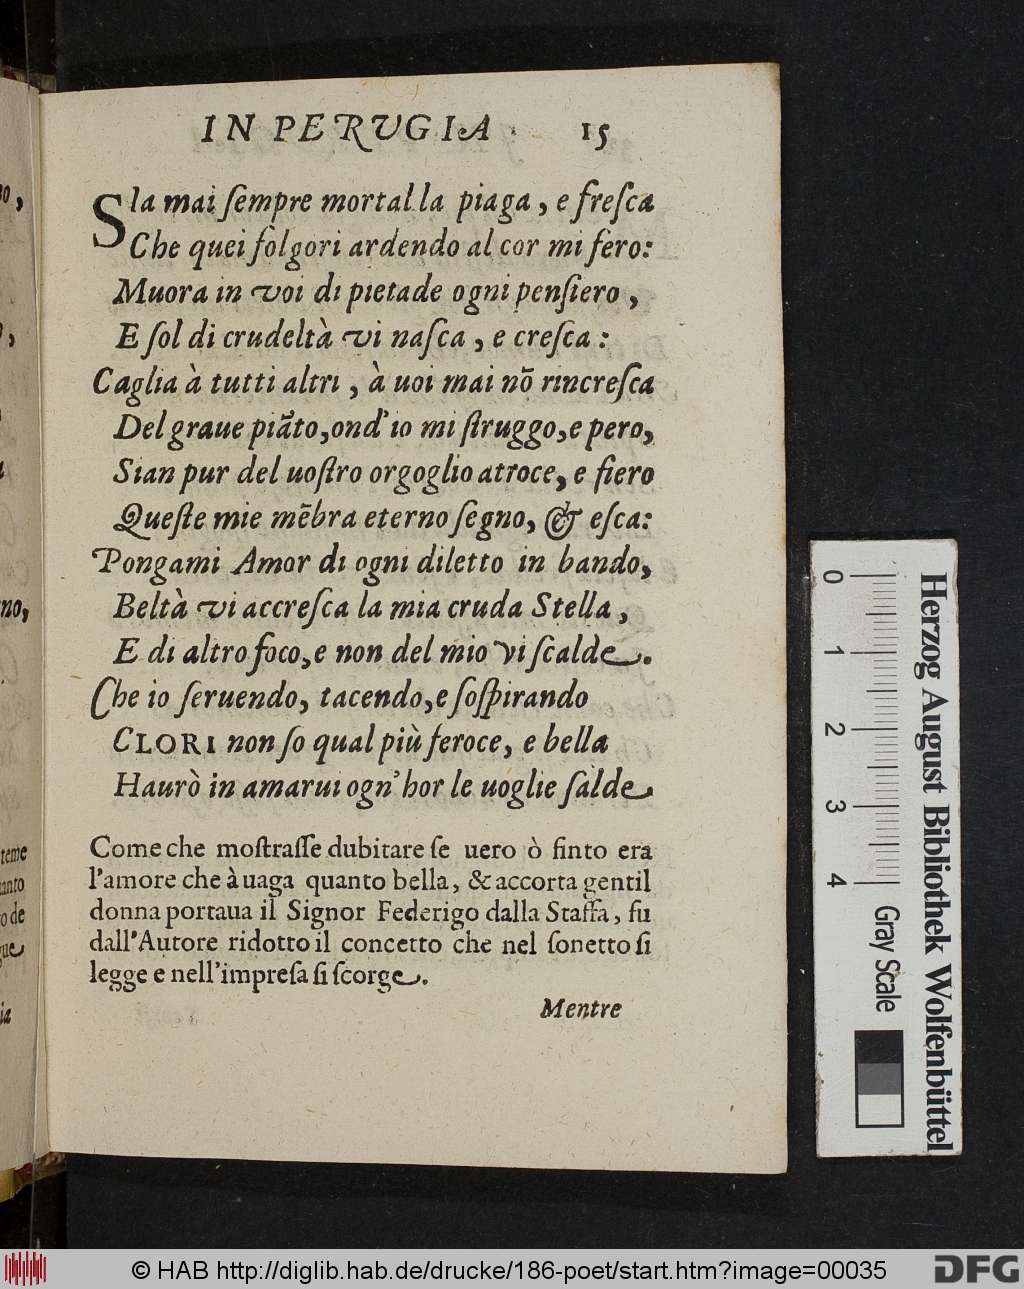 IN PERVGIA 15
SIa mai ſempre mortal la piaga, e freſca
Che quei fòlgori ardendo al cor mi fero:
Muora in voi di pietade ogni penſiero,
E ſol di crudeltà vi naſca, e creſca:
Caglia à tutti altri, à uoi mai nō rincreſca
Del graue piãto, ond'io mi ſtruggo, e pero,
Sian pur del uoſtro orgoglio atroce, e fiero
Queſte mie mēbra eterno ſegno, & eſca:
Pongami Amor di ogni diletto in bando,
Beltà vi accreſca la mia cruda Stella,
E di altro foco, e non del mio vi ſcalde.
Che io ſeruendo, tacendo, e ſoſpirando
CLORI non ſo qual più feroce, e bella
Haurò in amarui ogn'hor le uoglie ſalde
Come che moſtraſſe dubitare ſe uero ò finto era
l'amore che à uaga quanto bella, & accorta gentil
donna portaua il Signor Federigo dalla Staffa, fu
dall'Autore ridotto il concetto che nel ſonetto ſi
legge e nell'impreſa ſi ſcorge.
Mentre
0 1 2 3 4
Gray Scale
Herzog August Bibliothek Wolfenbüttel
© HAB http://diglib.hab.de/drucke/186-poet/start.htm?image=00035
DFG